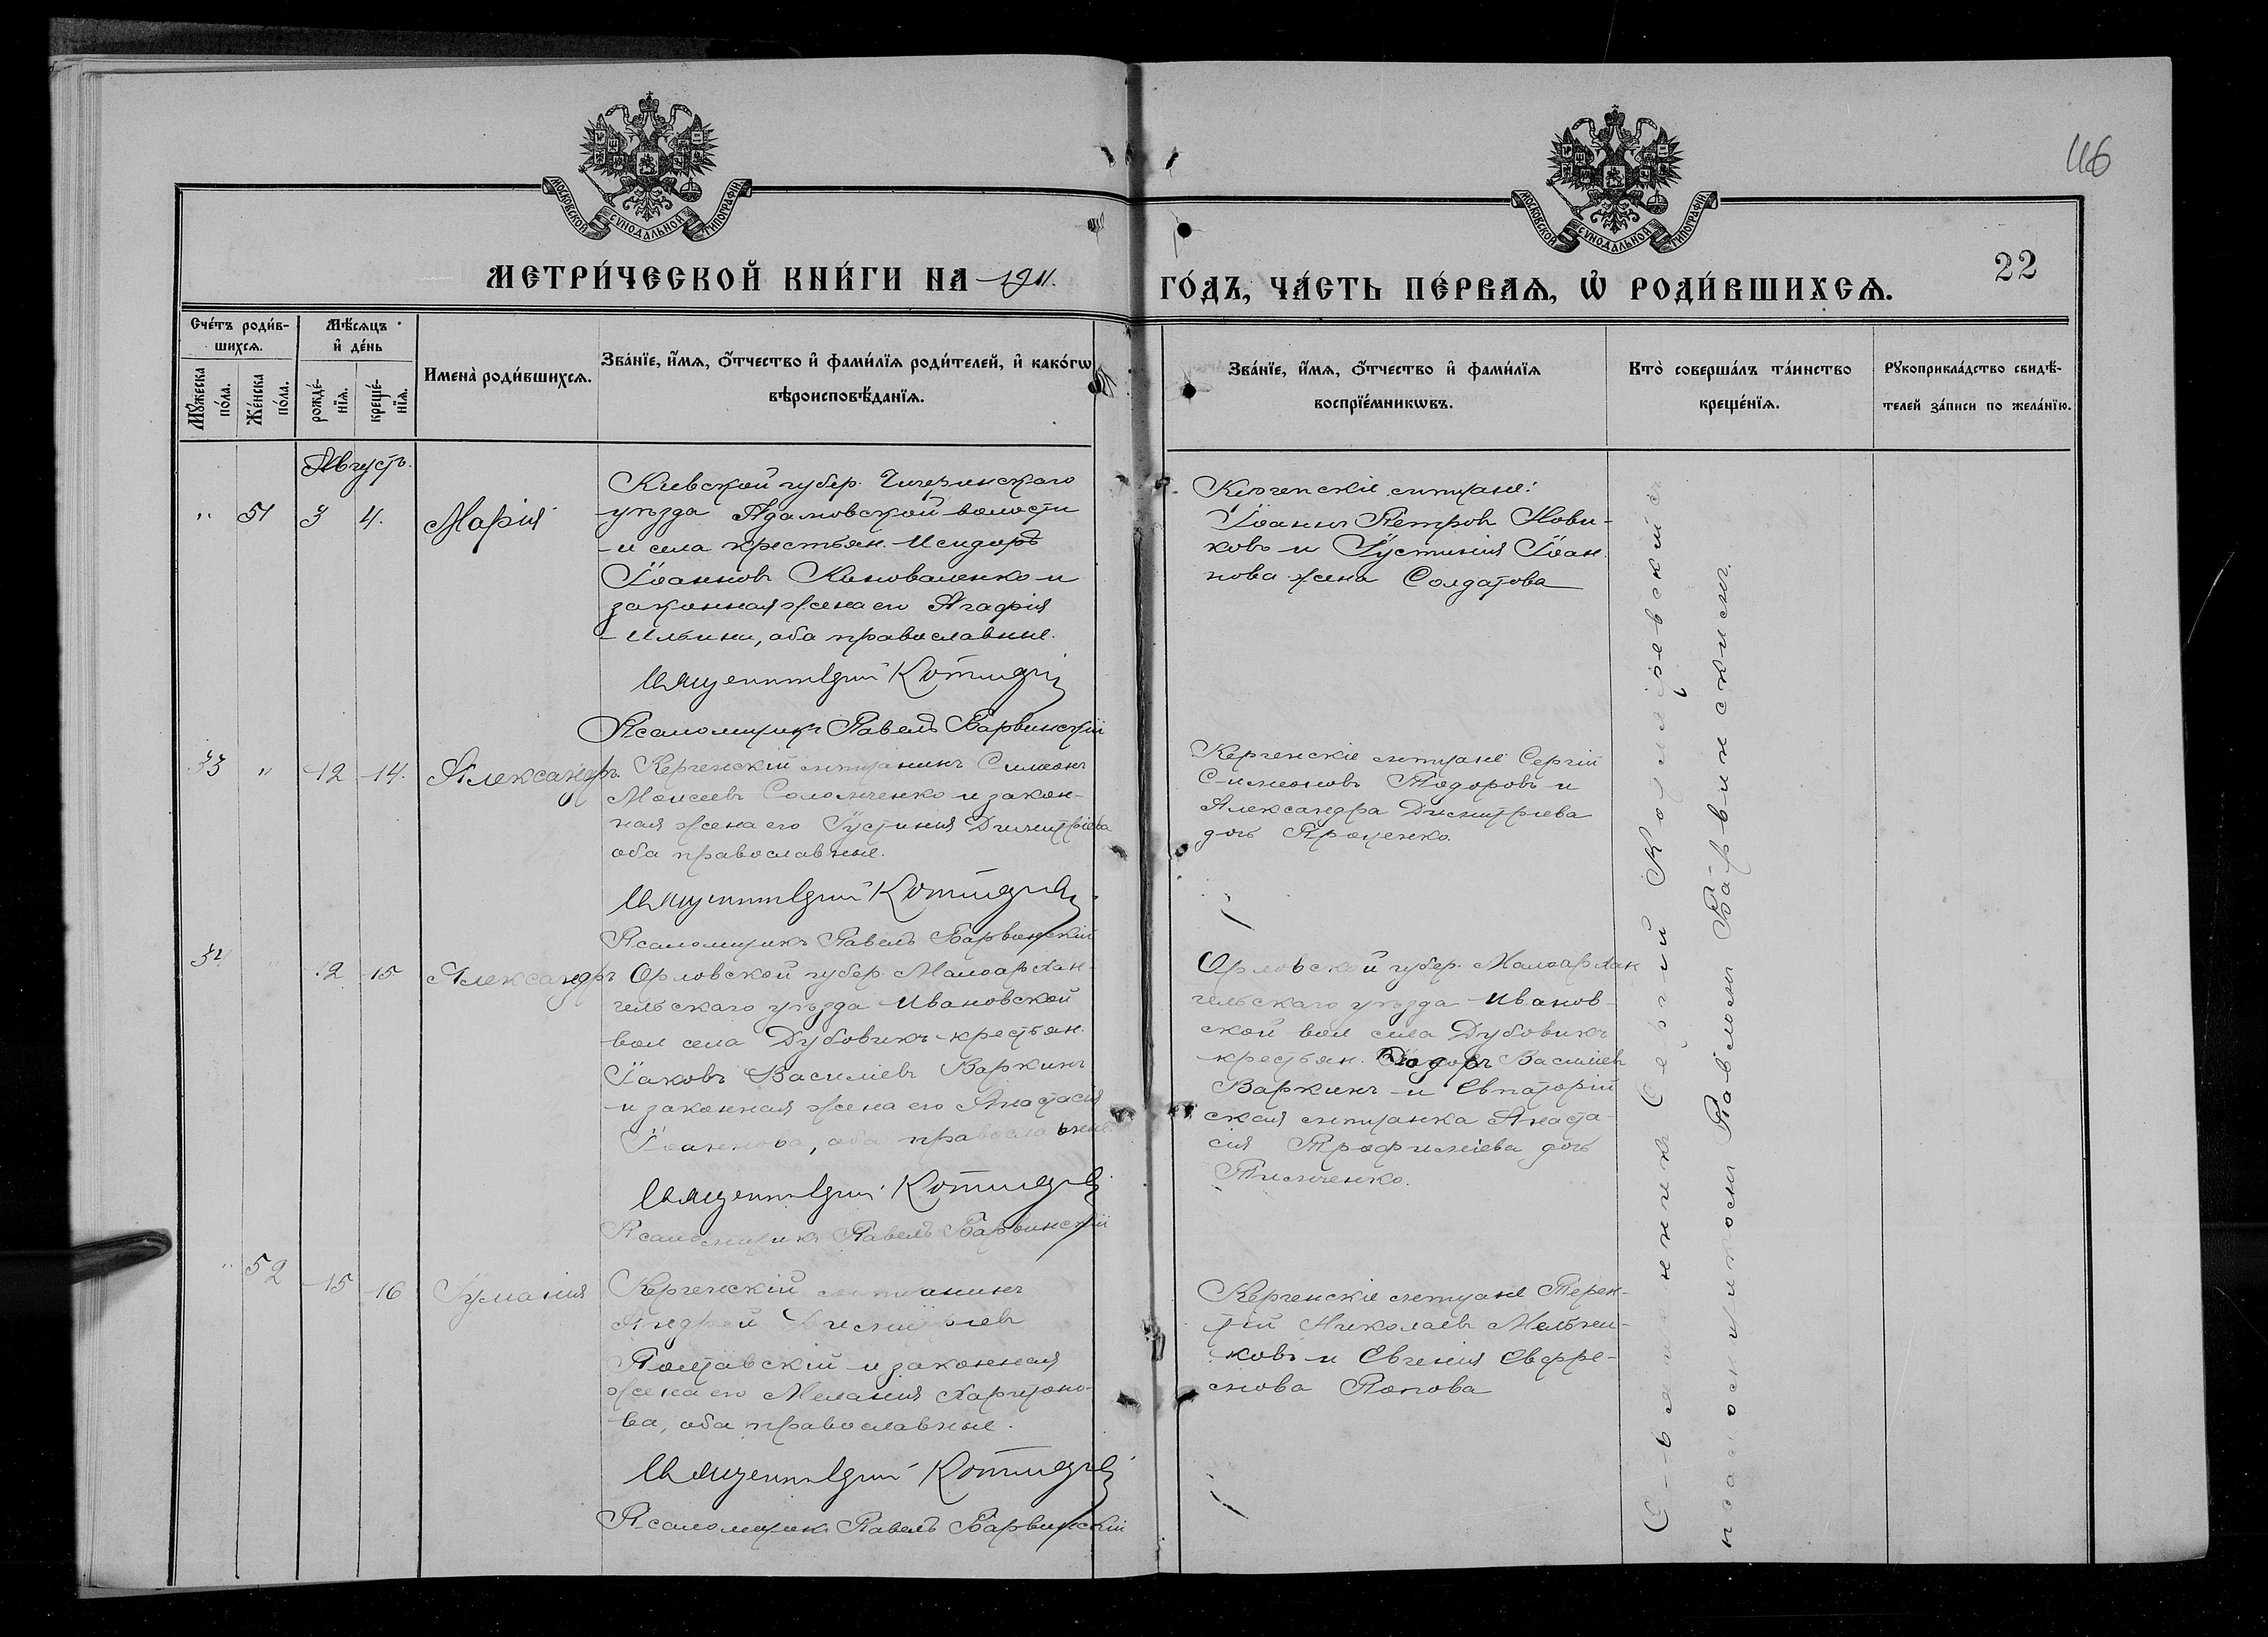 116
МОСКОВСКОЙ СѴНОДАЛЬНОЙ ТИПОГРАФІИ
МОСКОВСКОЙ СѴНОДАЛЬНОЙ ТИПОГРАФІИ
МЕТРИ́ЧЕСКОЙ КНИ́ГИ НА 1911.
ГО́ДЪ, ЧА́СТЬ ПЕ́РВАѦ, Ѡ РОДИ́ВШИХСѦ.
22
Сче́тъ роди́в-
шихсѧ.
Мꙋ́жеска по́ла.
Же́нска по́ла.
Мѣ́сѧцъ
и҆ де́нь
рожде́-
нїѧ.
креще́-
нїѧ.
Имена̀ роди́вшихсѧ.
Зва́нїе, и҆́мѧ, ѻ҆́тчество и҆ фами́лїѧ роди́телей, и҆ како́гѡ
вѣроисповѣ́данїѧ.
Зва́нїе, и҆́мѧ, ѻ҆́тчество и҆ фами́лїѧ
воспрїе́мникѡвъ.
Кто̀ соверша́лъ та́инство
креще́нїѧ.
Рꙋкоприкла́дство свидѣ́-
телей за́писи по жела́нїю.
Августъ.
" 51 3 4. Марія
Кіевской губер. Чигиринскаго
уѣзда Адамовской волости
и села крестьян. Исидоръ
Іоанновъ Коноваленко и
законная жена его Агафія
Ильина, оба православные.
Псаломщикъ Павелъ Барвинскій
Керченскіе мѣщане:
Іоаннъ Петровъ Нови-
ковъ и Іустинія Іоан
нова жена Солдатова
33 " 12 14. Александръ.
Керченскій мѣщанинъ Симеонъ
Моисеевъ Соломченко и закон-
ная жена его Іустинія Димитріева
оба православные.
Псаломщикъ Павелъ Барвинскій
Керченскіе мѣщане Сергій
Симеоновъ Тодоровъ и
Александра Димитріева
дочь Проценко.
34 12 15 Александръ
Орловской губер. Малоархан-
гельскаго уѣзда Ивановской
вол села Дубовикъ крестьян.
Іаковъ Василіевъ Варкинъ
и законная жена его Анастасія
Іоаннова, оба православные
Псаломщикъ Павелъ Барвинскій
Орловской губер. Малоархан
гельскаго уѣзда Иванов-
ской вол села Дубовикъ
крестьян. Василіевъ
Варкинъ и Евпаторій
ская мѣщанка Анаста-
сія Трофиміева дочь
Тимченко.
" 52 15 16 Іуліанія
Керченскій мѣщанинъ
Андрей Димитріевъ
Полтавскій и законная
жена его Меланія Харитоно-
ва, оба православные.
Псаломщикъ Павелъ Барвинскій
Керченскіе мѣщане Терен-
тій Николаевъ Мельни-
ковъ и Евгенія Евфре-
мова Попова
Священникъ Сергій
псаломщикомъ Павломъ Барвинскимъ.